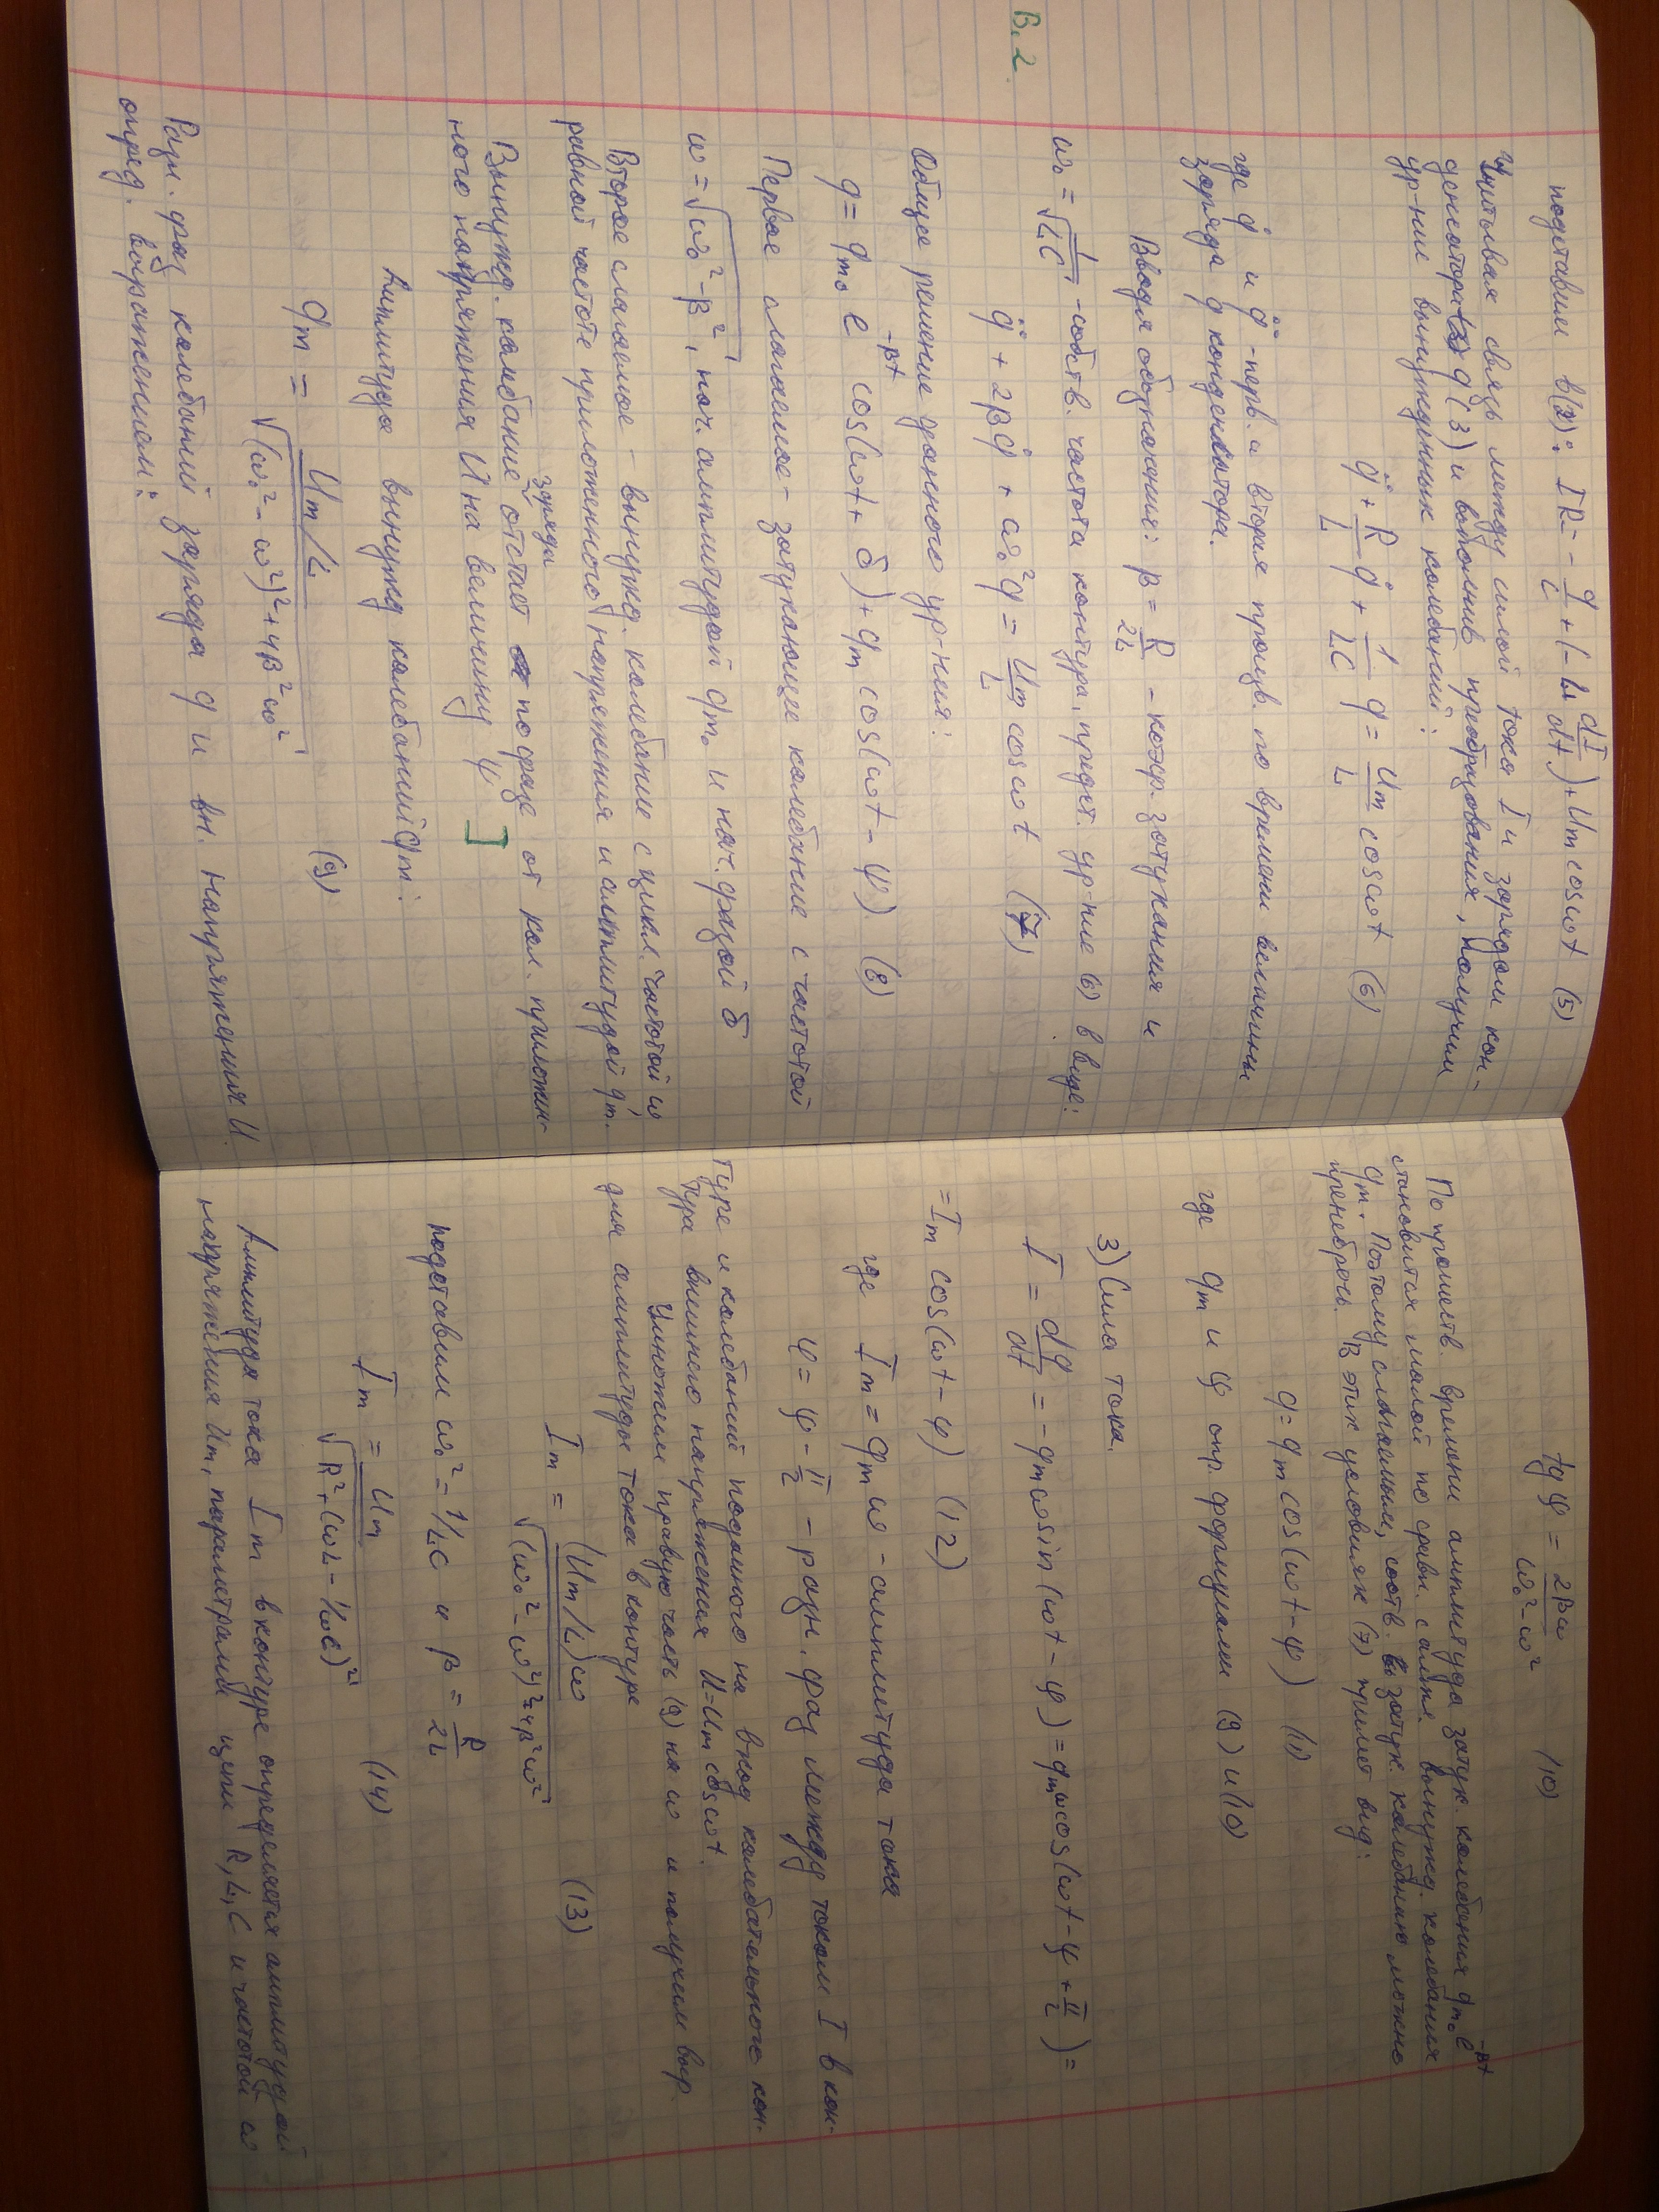 подставим в(2): IR = - q/C + (-L dI/dt) + Um cosωt (5)
Учитывая связь между силой тока I и зарядом кон-
денсатора q (3) и выполнив преобразования, получим
ур-ние вынужденных колебаний:
q̈ + R/L q̇ + 1/LC q = Um/L cosωt (6)
где q̇ и q̈ - перв. и вторая произв. по времени величины
заряда q конденсатора.
Вводя обозначения: β = R/2L - коэф. затухания и
ω₀ = 1/√LC - собств. частота контура, предст. ур-ние (6) в виде:
B.2
q̈ + 2βq̇ + ω₀²q = Um/L cosωt (7)
Общее решение данного ур-ния:
q = qm₀ e^-βt cos(ωt + δ) + qm cos(ωt - ψ) (8)
Первое слагаемое - затухающие колебание с частотой
ω = √ω₀² - β², нач. амплитудой qm₀ и нач. фазой δ
Второе слагаемое - вынужд. колебание с цикл. частотой ω,
равной частоте приложенного напряжения и амплитудой qm.
Вынужд. колебание заряда отстает по фазе от кол. приложен-
ного напряжения U на величину ψ ]
Амплитуда вынужд колебаний qm:
qm = Um/L / √(ω₀² - ω²)² + 4β²ω² (9)
Разн. фаз колебаний заряда q и вн. напряжения U
опред. выражением:
tg ψ = 2βω / ω₀² - ω² (10)
По прошеств. времени амплитуда затух. колебания qm₀ e^-βt
становится малой по сравн. с ампл. вынужд. колебания
qm. Поэтому слагаемым, соотв. затух. колебанию можно
пренебречь. В этих условиях (7) примет вид:
q = qm cos(ωt - ψ) (11)
где qm и ψ опр. формулами (9) и (10)
3) Сила тока.
I = dq/dt = -qmω sin(ωt - ψ) = qmω cos(ωt - ψ + π/2) =
= Im cos(ωt - φ) (12)
где Im = qmω - амплитуда тока
φ = ψ - π/2 - разн. фаз между током I в кон-
туре и колебаний поданного на вход колебательного кон-
тура внешнего напряжения U = Um cosωt.
Умножим правую часть (9) на ω и получим выр
для амплитуды тока в контуре
Im = (Um/L)ω / √(ω₀² - ω²)² + 4β²ω² (13)
подставим ω₀² = 1/LC и β = R/2L
Im = Um / √R² + (ωL - 1/ωC)² (14)
Амплитуда тока Im в контуре определяется амплитудой
напряжения Um, параметрами цепи R, L, C и частотой ω